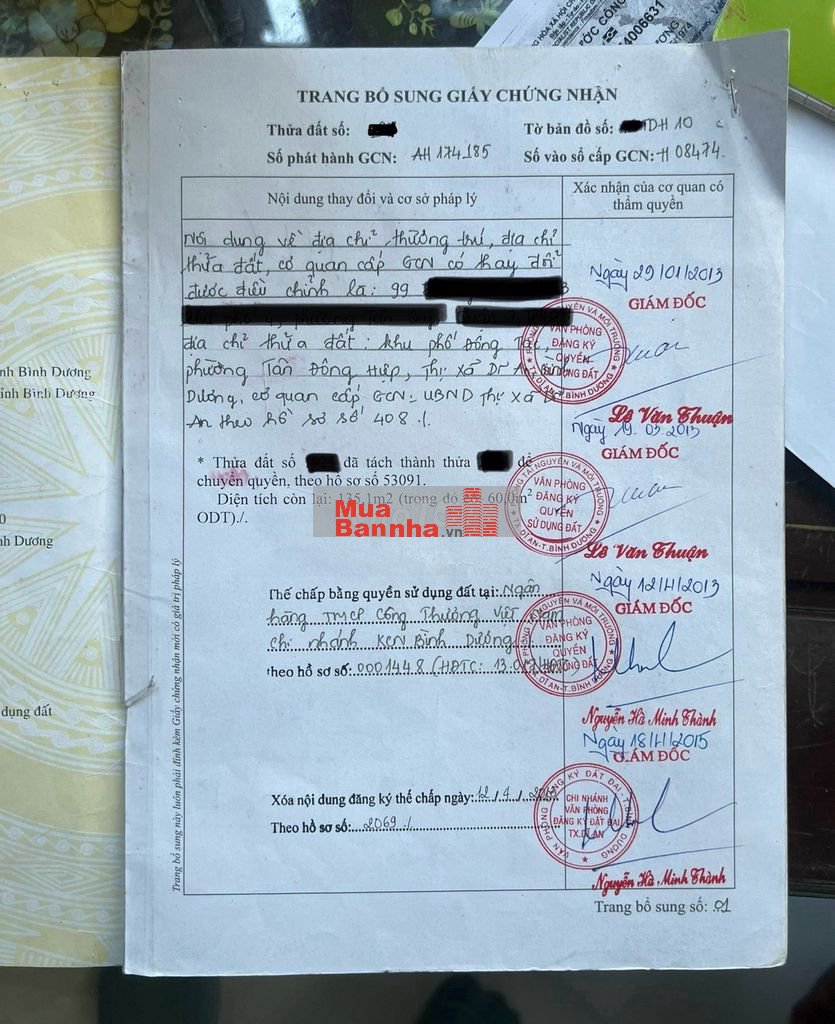 TRANG BỔ SUNG GIẤY CHỨNG NHẬN
Thửa đất số:
Tờ bản đồ số: DH 10
Số phát hành GCN: AH 174185
Số vào sổ cấp GCN: H 08474.
Nội dung thay đổi và cơ sở pháp lý
Xác nhận của cơ quan có
thẩm quyền
Nội dung về địa chỉ thường trú, địa chỉ
thửa đất, cơ quan cấp GCN có thay đổi
được điều chỉnh là: 99
địa chỉ thửa đất: khu phố Đông Tác,
phường Tân Đông Hiệp, Thị xã Dĩ An, Bình
Dương, cơ quan cấp GCN: UBND Thị xã Dĩ
An theo hồ sơ số 408 /.
Ngày 29/01/2013
GIÁM ĐỐC
VĂN PHÒNG
ĐĂNG KÝ
QUYỀN
SỬ DỤNG ĐẤT
TX.DĨ AN-T.BÌNH DƯƠNG
Lê Văn Thuận
* Thửa đất số đã tách thành thửa để
chuyển quyền, theo hồ sơ số 53091.
Diện tích còn lại: 135,1m2 (trong đó có 60,0m2
ODT)./.
Ngày 19.03.2013
GIÁM ĐỐC
PHÒNG TÀI NGUYÊN VÀ MÔI TRƯỜNG
VĂN PHÒNG
ĐĂNG KÝ
QUYỀN
SỬ DỤNG ĐẤT
TX.DĨ AN-T.BÌNH DƯƠNG
Lê Văn Thuận
Mua
Bannha.vn
Thế chấp bằng quyền sử dụng đất tại: Ngân
hàng TMCP Công Thương Việt Nam
chi nhánh KCN Bình Dương
theo hồ sơ số: 0001448 (HĐTC: 13.
Ngày 12/4/2013
GIÁM ĐỐC
PHÒNG TÀI NGUYÊN VÀ MÔI TRƯỜNG
VĂN PHÒNG
ĐĂNG KÝ
QUYỀN
SỬ DỤNG ĐẤT
TX.DĨ AN-T.BÌNH DƯƠNG
Nguyễn Hà Minh Thành
Xóa nội dung đăng ký thế chấp ngày:
Theo hồ sơ số: 2069 /.
Ngày 18/4/2015
GIÁM ĐỐC
VĂN PHÒNG ĐĂNG KÝ ĐẤT ĐAI
CHI NHÁNH
VĂN PHÒNG
ĐĂNG KÝ ĐẤT ĐAI
TX.DĨ AN
Nguyễn Hà Minh Thành
Trang bổ sung số: 01
Trang bổ sung này luôn phải đính kèm Giấy chứng nhận mới có giá trị pháp lý
nh Bình Dương
ỉnh Bình Dương
0
nh Dương
dụng đất
4006631